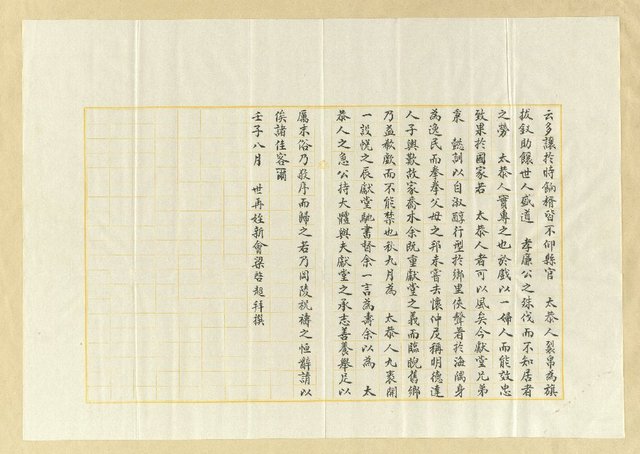 云多讓於時餉糈皆不仰縣官　太恭人裂帛為旗
拔釵助饟世人盛道　孝廉公之殊伐而不知居者
之勞　太恭人實專之也於戲以一婦人而能效忠
致果於國家若　太恭人者可以風矣今獻堂兄弟
秉　懿訓以自淑醇行型於鄉里俠聲著於海隅身
為逸民而拳拳父母之邦未嘗去懷仲尼稱明德達
人子輿歎故家喬木余既重獻堂之義而臨睨舊鄉
乃益欷歔而不能禁也秋九月為　太恭人九袠開
一設帨之辰獻堂馳書督余一言為壽余以為　太
恭人之急公持大體與夫獻堂之承志善養舉足以
厲末俗乃敬序而歸之若乃岡陵祝禱之恒辭請以
俟諸佳客爾
壬子八月　世再姪新會梁啓超拜撰